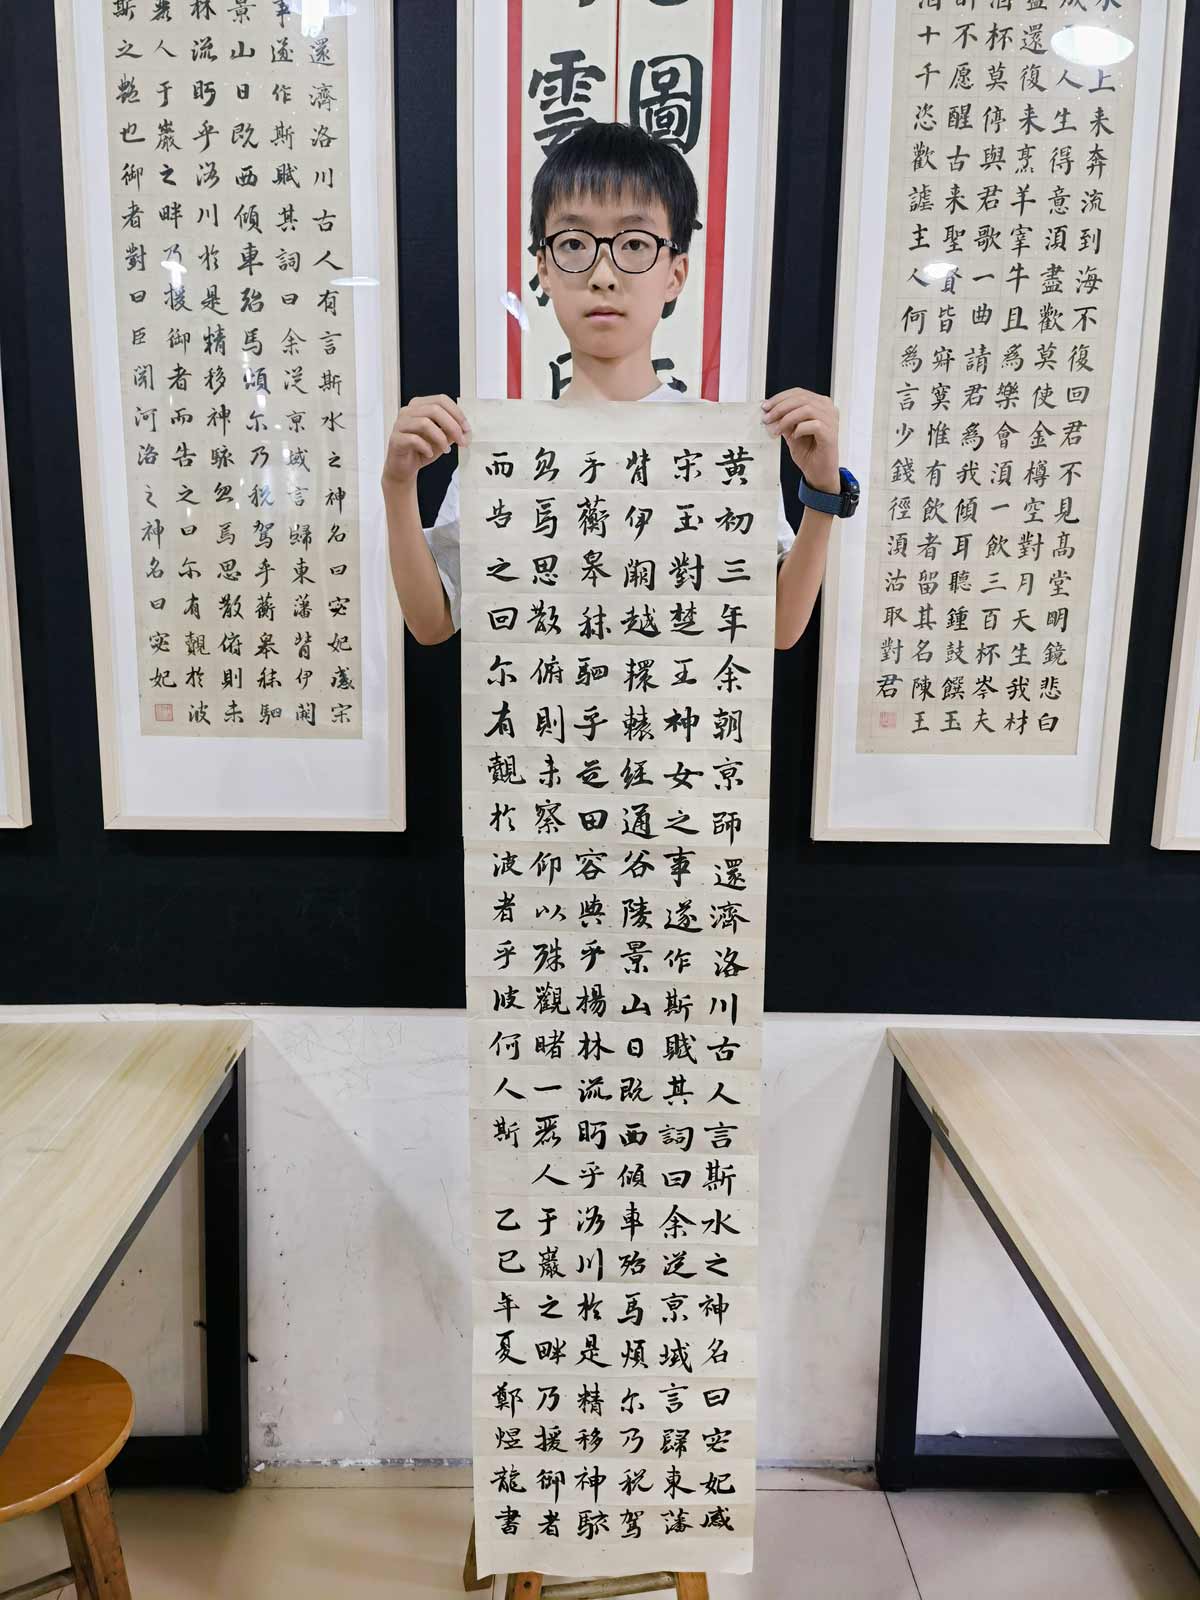 黄初三年余朝京師還濟洛川古人言斯水之神名曰宓妃感
宋玉對楚王神女之事遂作斯賦其詞曰余從京域言歸東藩
背伊闕越轘轅經通谷陵景山日既西傾車殆馬煩尔乃税駕
乎蘅皋秣駟乎芝田容與乎楊林流眄乎洛川於是精移神駭
忽焉思散俯則未察仰以殊觀睹一麗人于巖之畔乃援御者
而告之回尔有覿於波者乎彼何人斯
乙巳年夏鄭煜龍書
上来奔流到海不復回君不見髙堂明鏡悲白
人生得意須盡歡莫使金樽空對月天生我材
還復来烹羊宰牛且爲樂會須一飲三百杯岑夫
杯莫停與君歌一曲請君爲我傾耳聽鍾鼓饌玉
不愿醒古来聖賢皆寂寞惟有飲者留其名陳王
十千恣歡謔主人何爲言少錢徑須沽取對君
圖
雲
還濟洛川古人有言斯水之神名曰宓妃感宋
事遂作斯賦其詞曰余從京域言歸東藩背伊闕
景山日既西傾車殆馬煩尔乃税駕乎蘅皋秣駟
林流眄乎洛川於是精移神駭忽焉思散俯則未
人于巖之畔乃援御者而告之曰尔有覿於波
斯之艷也御者對曰臣聞河洛之神名曰宓妃